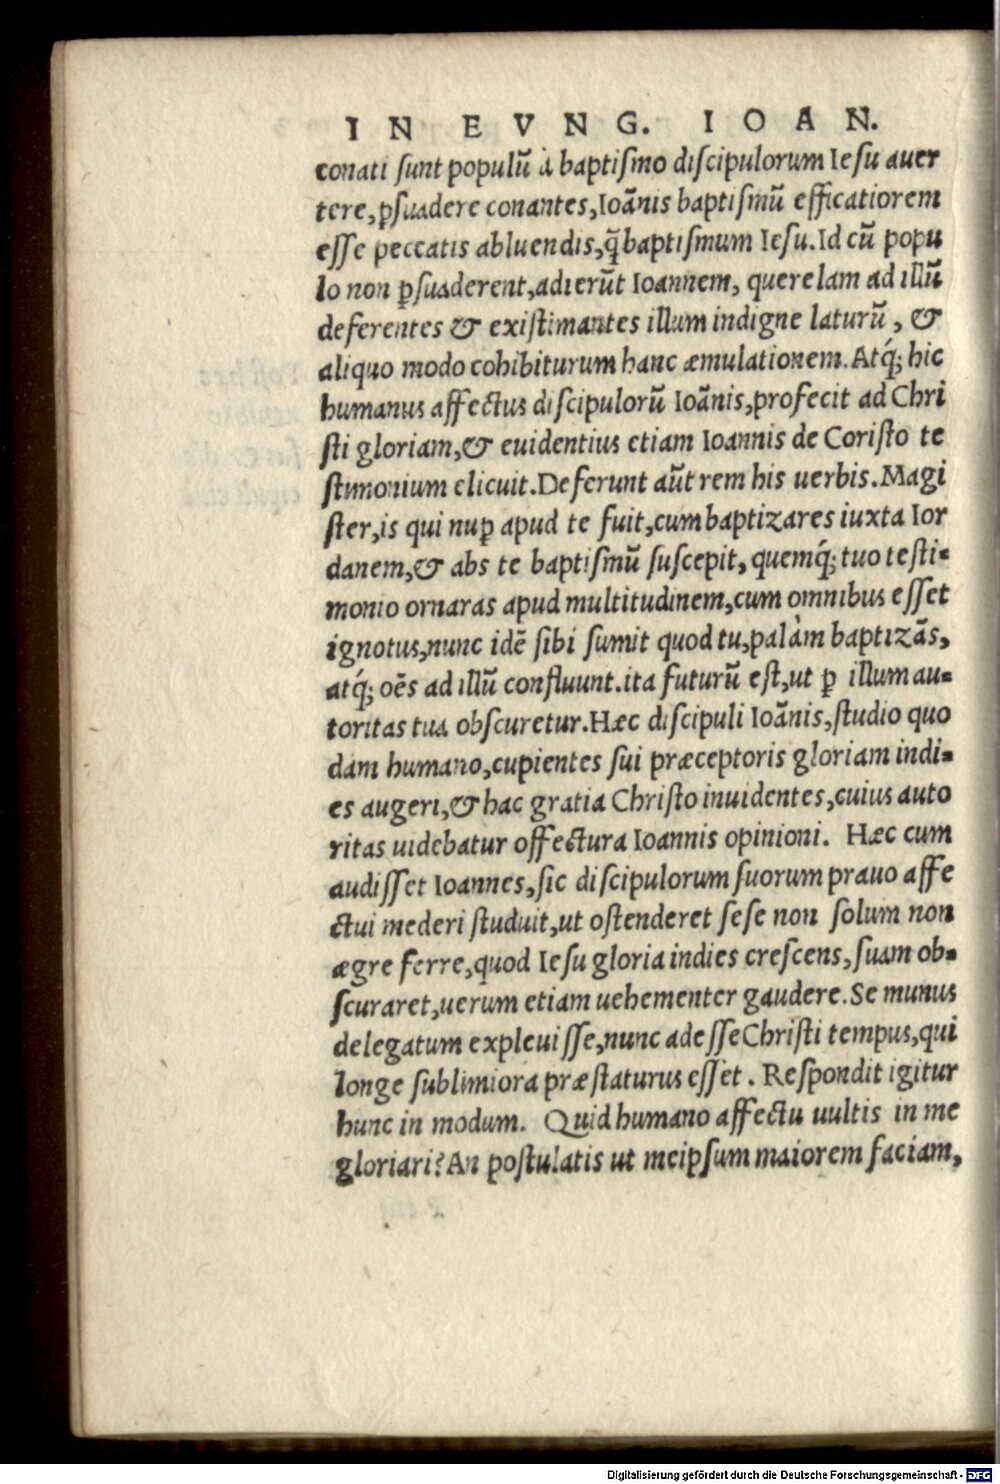 IN EVNG. IOAN.
conati sunt populũ à baptismo discipulorum Iesu auer
tere, ꝑsuadere conantes, Ioãnis baptismũ efficatiorem
esse peccatis abluendis, q̃ baptismum Iesu. Id cũ popu
lo non ꝑsuaderent, adierũt Ioannem, querelam ad illũ
deferentes & existimantes illum indigne laturũ, &
aliquo modo cohibiturum hanc æmulationem. Atq́; hic
humanus affectus discipulorũ Ioãnis, profecit ad Chri
sti gloriam, & euidentius etiam Ioannis de Coristo te
stimonium elicuit. Deferunt aũt rem his uerbis. Magi
ster, is qui nuꝑ apud te fuit, cum baptizares iuxta Ior
danem, & abs te baptismũ suscepit, quemq́; tuo testi-
monio ornaras apud multitudinem, cum omnibus esset
ignotus, nunc idẽ sibi sumit quod tu, palàm baptizãs,
atq́; oẽs ad illũ confluunt. ita futurũ est, ut ꝑ illum au-
toritas tua obscuretur. Hæc discipuli Ioãnis, studio quo
dam humano, cupientes sui præceptoris gloriam indi-
es augeri, & hac gratia Christo inuidentes, cuius auto
ritas uidebatur offectura Ioannis opinioni. Hæc cum
audisset Ioannes, sic discipulorum suorum prauo affe
ctui mederi studuit, ut ostenderet sese non solum non
ægre ferre, quod Iesu gloria indies crescens, suam ob-
scuraret, uerum etiam uehementer gaudere. Se munus
delegatum expleuisse, nunc adesse Christi tempus, qui
longe sublimiora præstaturus esset. Respondit igitur
hunc in modum. Quid humano affectu uultis in me
gloriari? An postulatis ut meipsum maiorem faciam,
Digitalisierung gefördert durch die Deutsche Forschungsgemeinschaft - DFG